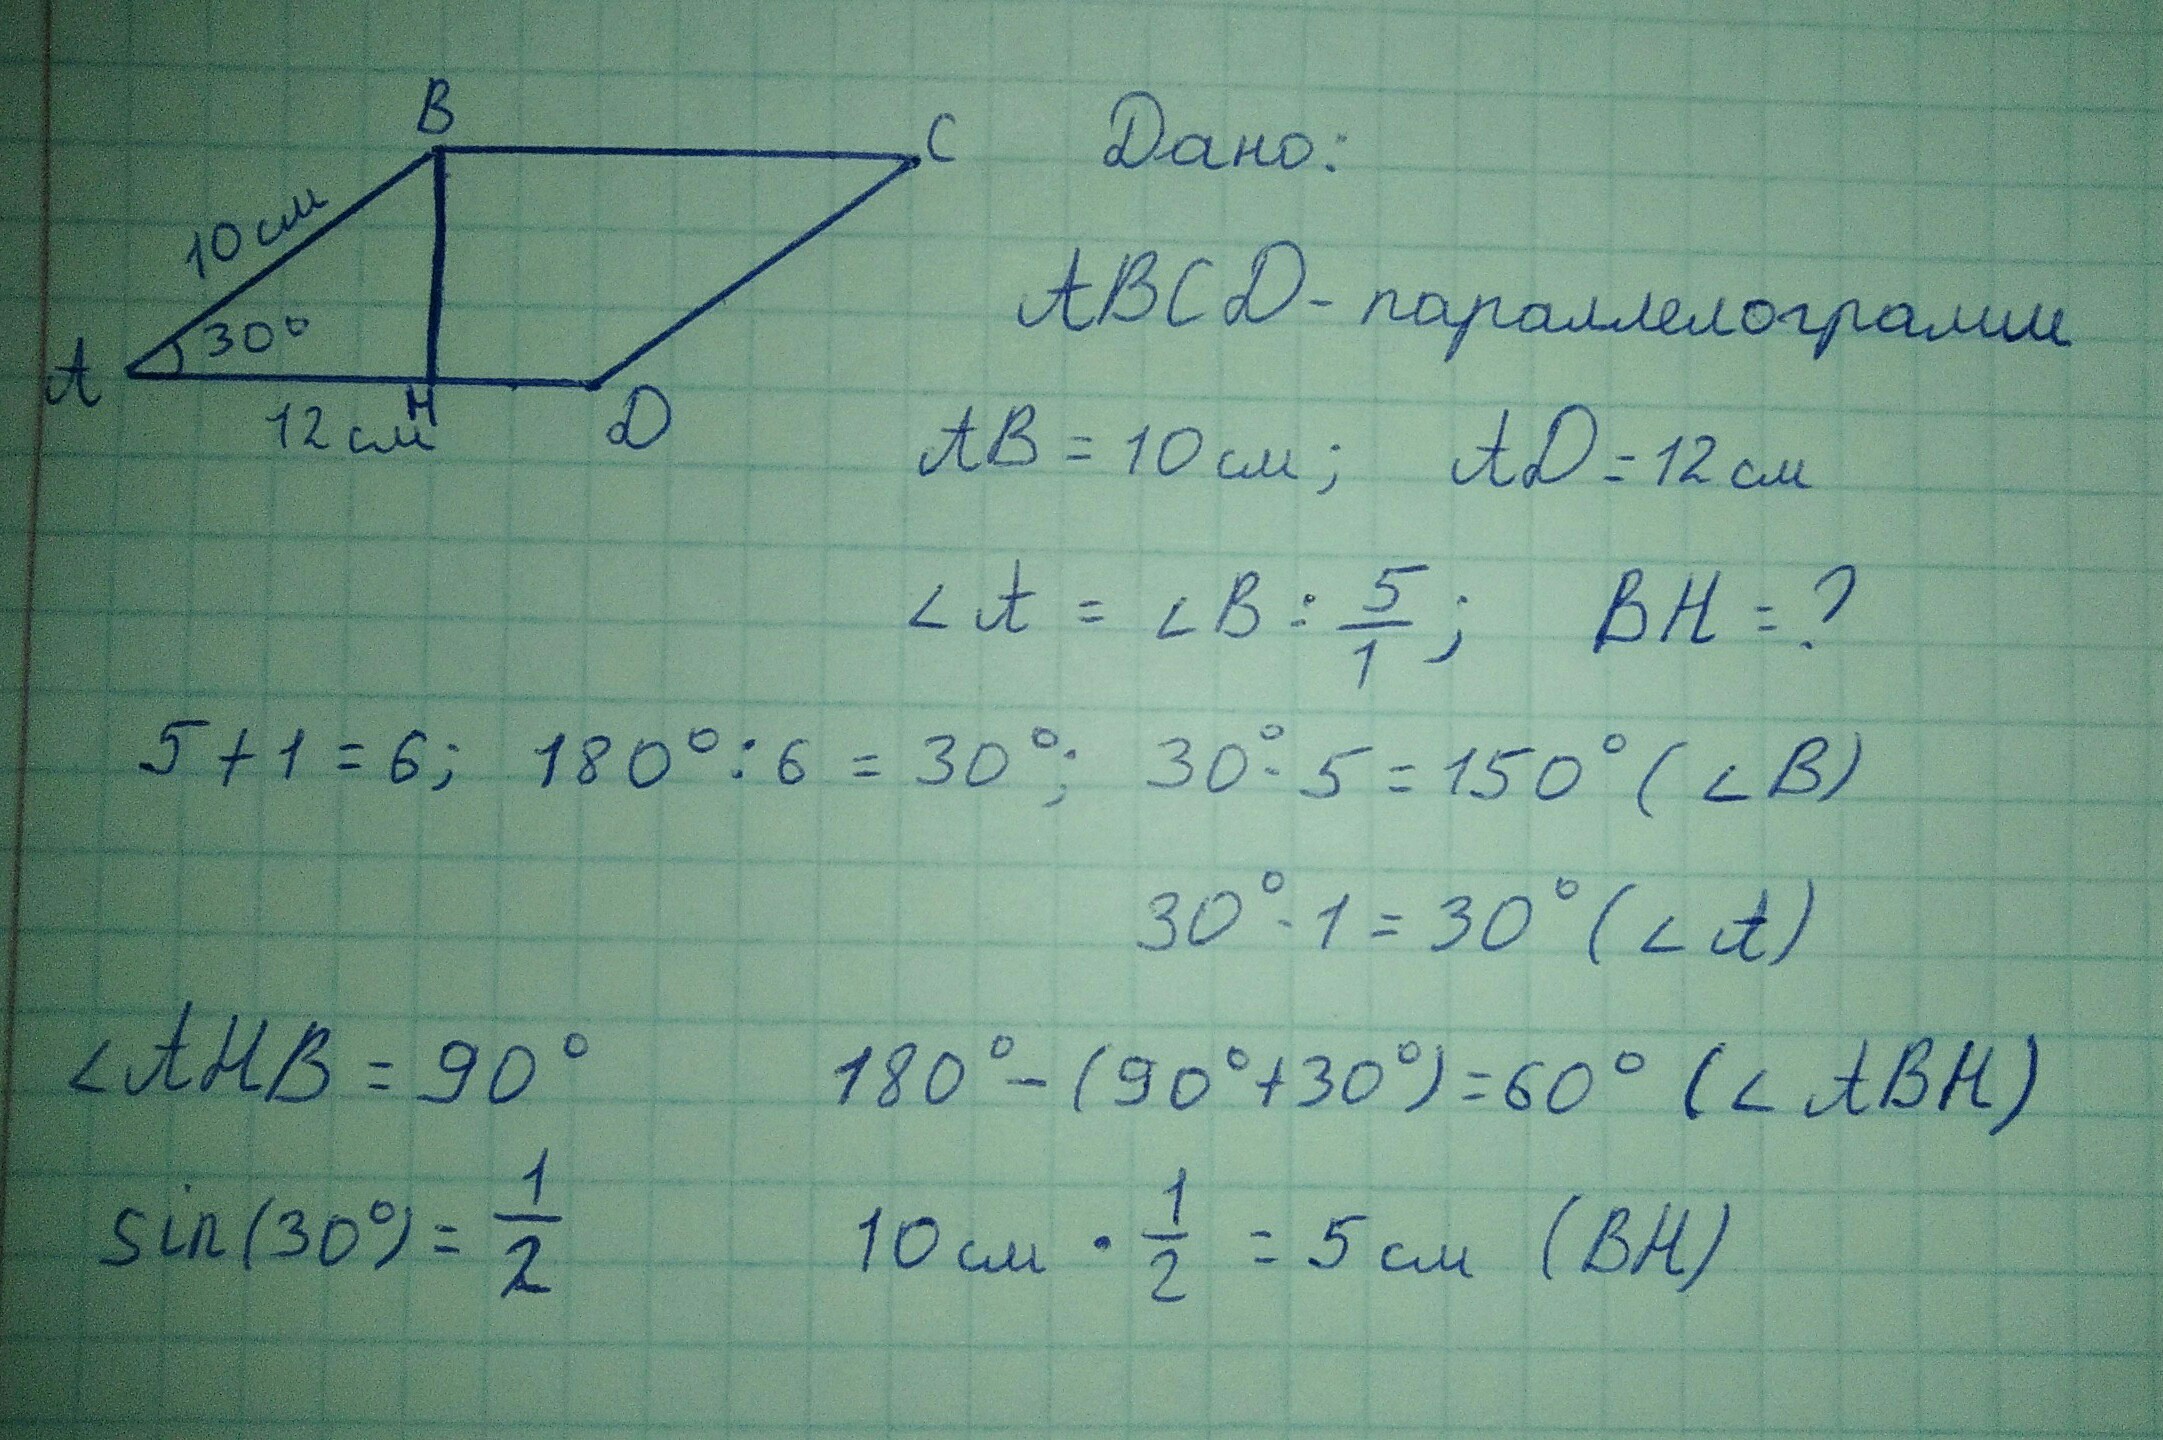 B
C
10 см
30°
A
H
12 см
D
Дано:
ABCD - параллелограмм
AB = 10 см; AD = 12 см
∠A = ∠B : 5/1; BH = ?
5 + 1 = 6; 180° : 6 = 30°; 30° · 5 = 150° (∠B)
30° · 1 = 30° (∠A)
∠AHB = 90° 180° - (90° + 30°) = 60° (∠ABH)
sin(30°) = 1/2 10 см · 1/2 = 5 см (BH)